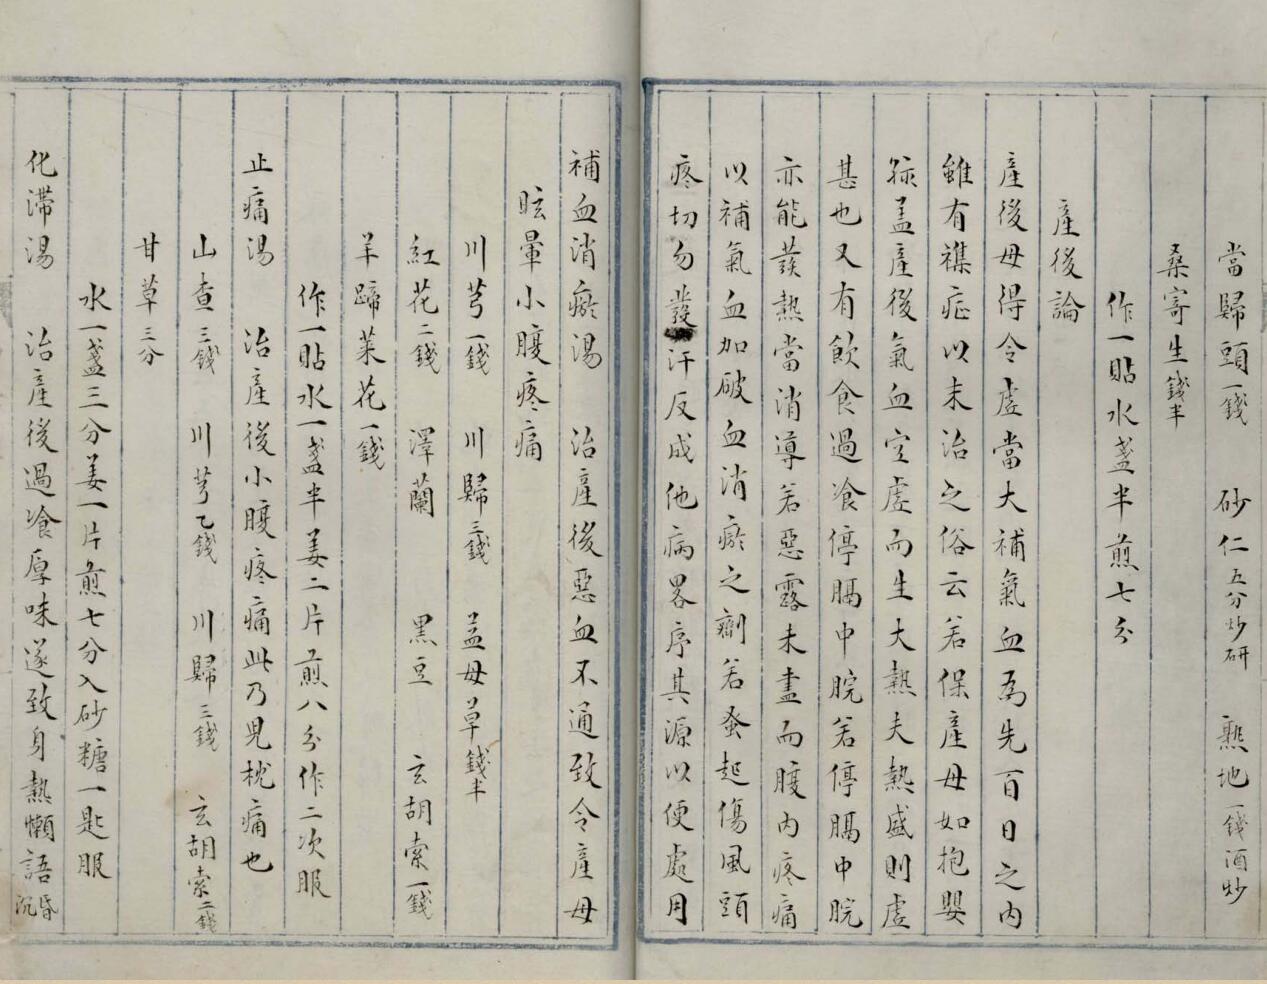 當歸頭一錢　砂仁五分炒研　熟地一錢酒炒
桑寄生錢半
作一貼水盞半煎七分
產後論
產後母得令虛當大補氣血爲先百日之內
雖有襍症以末治之俗云若保產母如抱嬰
孩盖產後氣血空虛而生大熱夫熱盛則虛
甚也又有飲食過飡停膈中脘若停膈中脘
亦能發熱當消導若惡露未盡而腹內疼痛
以補氣血加破血消瘀之劑若蚤起傷風頭
疼切勿發汗反成他病畧序其源以便處用
補血消瘀湯　治產後惡血不通致令產母
眩暈小腹疼痛
川芎一錢　川歸三錢　益母草錢半
紅花二錢　澤蘭　黑豆　玄胡索一錢
羊蹄菜花一錢
作一貼水一盞半姜二片煎八分作二次服
止痛湯　治產後小腹疼痛此乃兒枕痛也
山查三錢　川芎乙錢　川歸三錢　玄胡索二錢
甘草三分
水一盞三分姜一片煎七分入砂糖一匙服
化滯湯　治產後過飡厚味遂致身熱懶語昏沉